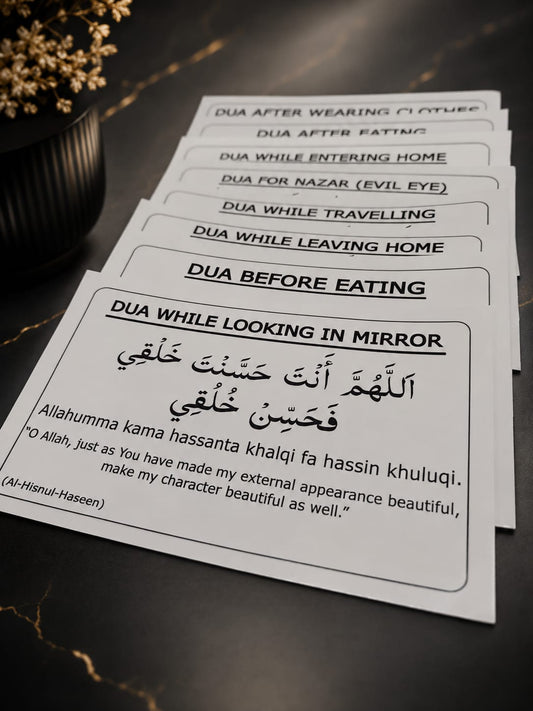 DUA AFTER WEARING CLOTHES
DUA AFTER EATING
DUA WHILE ENTERING HOME
DUA FOR NAZAR (EVIL EYE)
DUA WHILE TRAVELLING
DUA WHILE LEAVING HOME
DUA BEFORE EATING
DUA WHILE LOOKING IN MIRROR
اَللَّهُمَّ أَنْتَ حَسَّنْتَ خَلْقِي
فَحَسِّنْ خُلُقِي
Allahumma kama hassanta khalqi fa hassin khuluqi.
"O Allah, just as You have made my external appearance beautiful,
make my character beautiful as well."
(Al-Hisnul-Haseen)